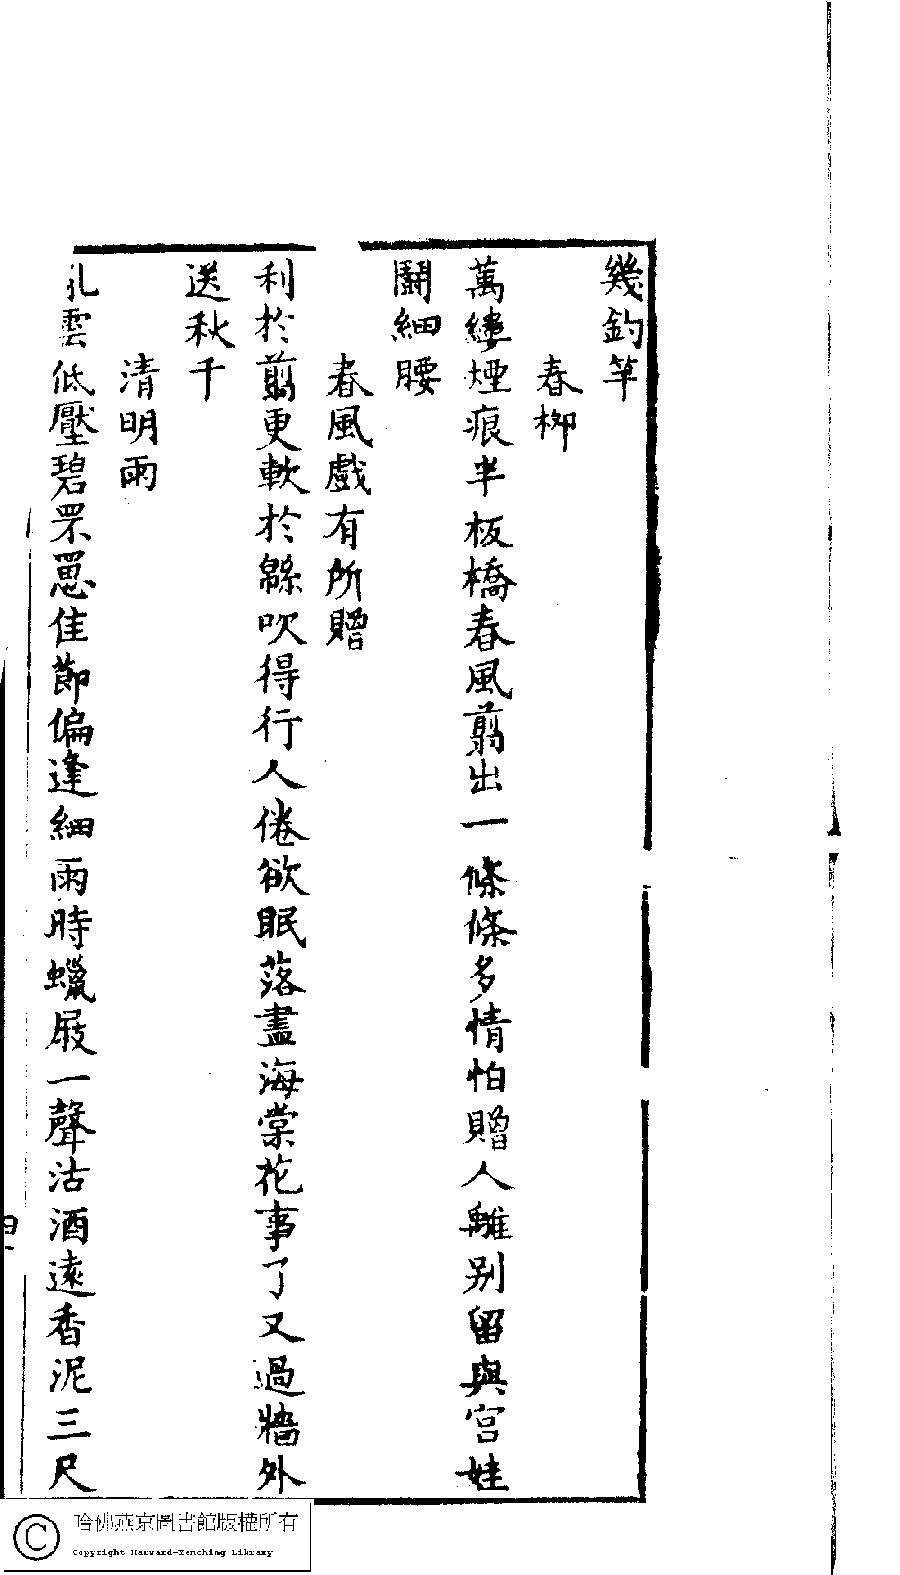 幾釣竿
春栁
萬縷煙痕半板橋春風翦出一條條多情怕贈人離别留與宫娃
鬪細腰
春風戲有所贈
利於翦更軟於緜吹得行人倦欲眠落盡海棠花事了又過牆外
送秋千
清明雨
雲低壓碧罘罳佳節偏逢細雨時蠟屐一聲沽酒遠香泥三尺
哈佛燕京圖書館版權所有
Copyright Harvard-Yenching Library